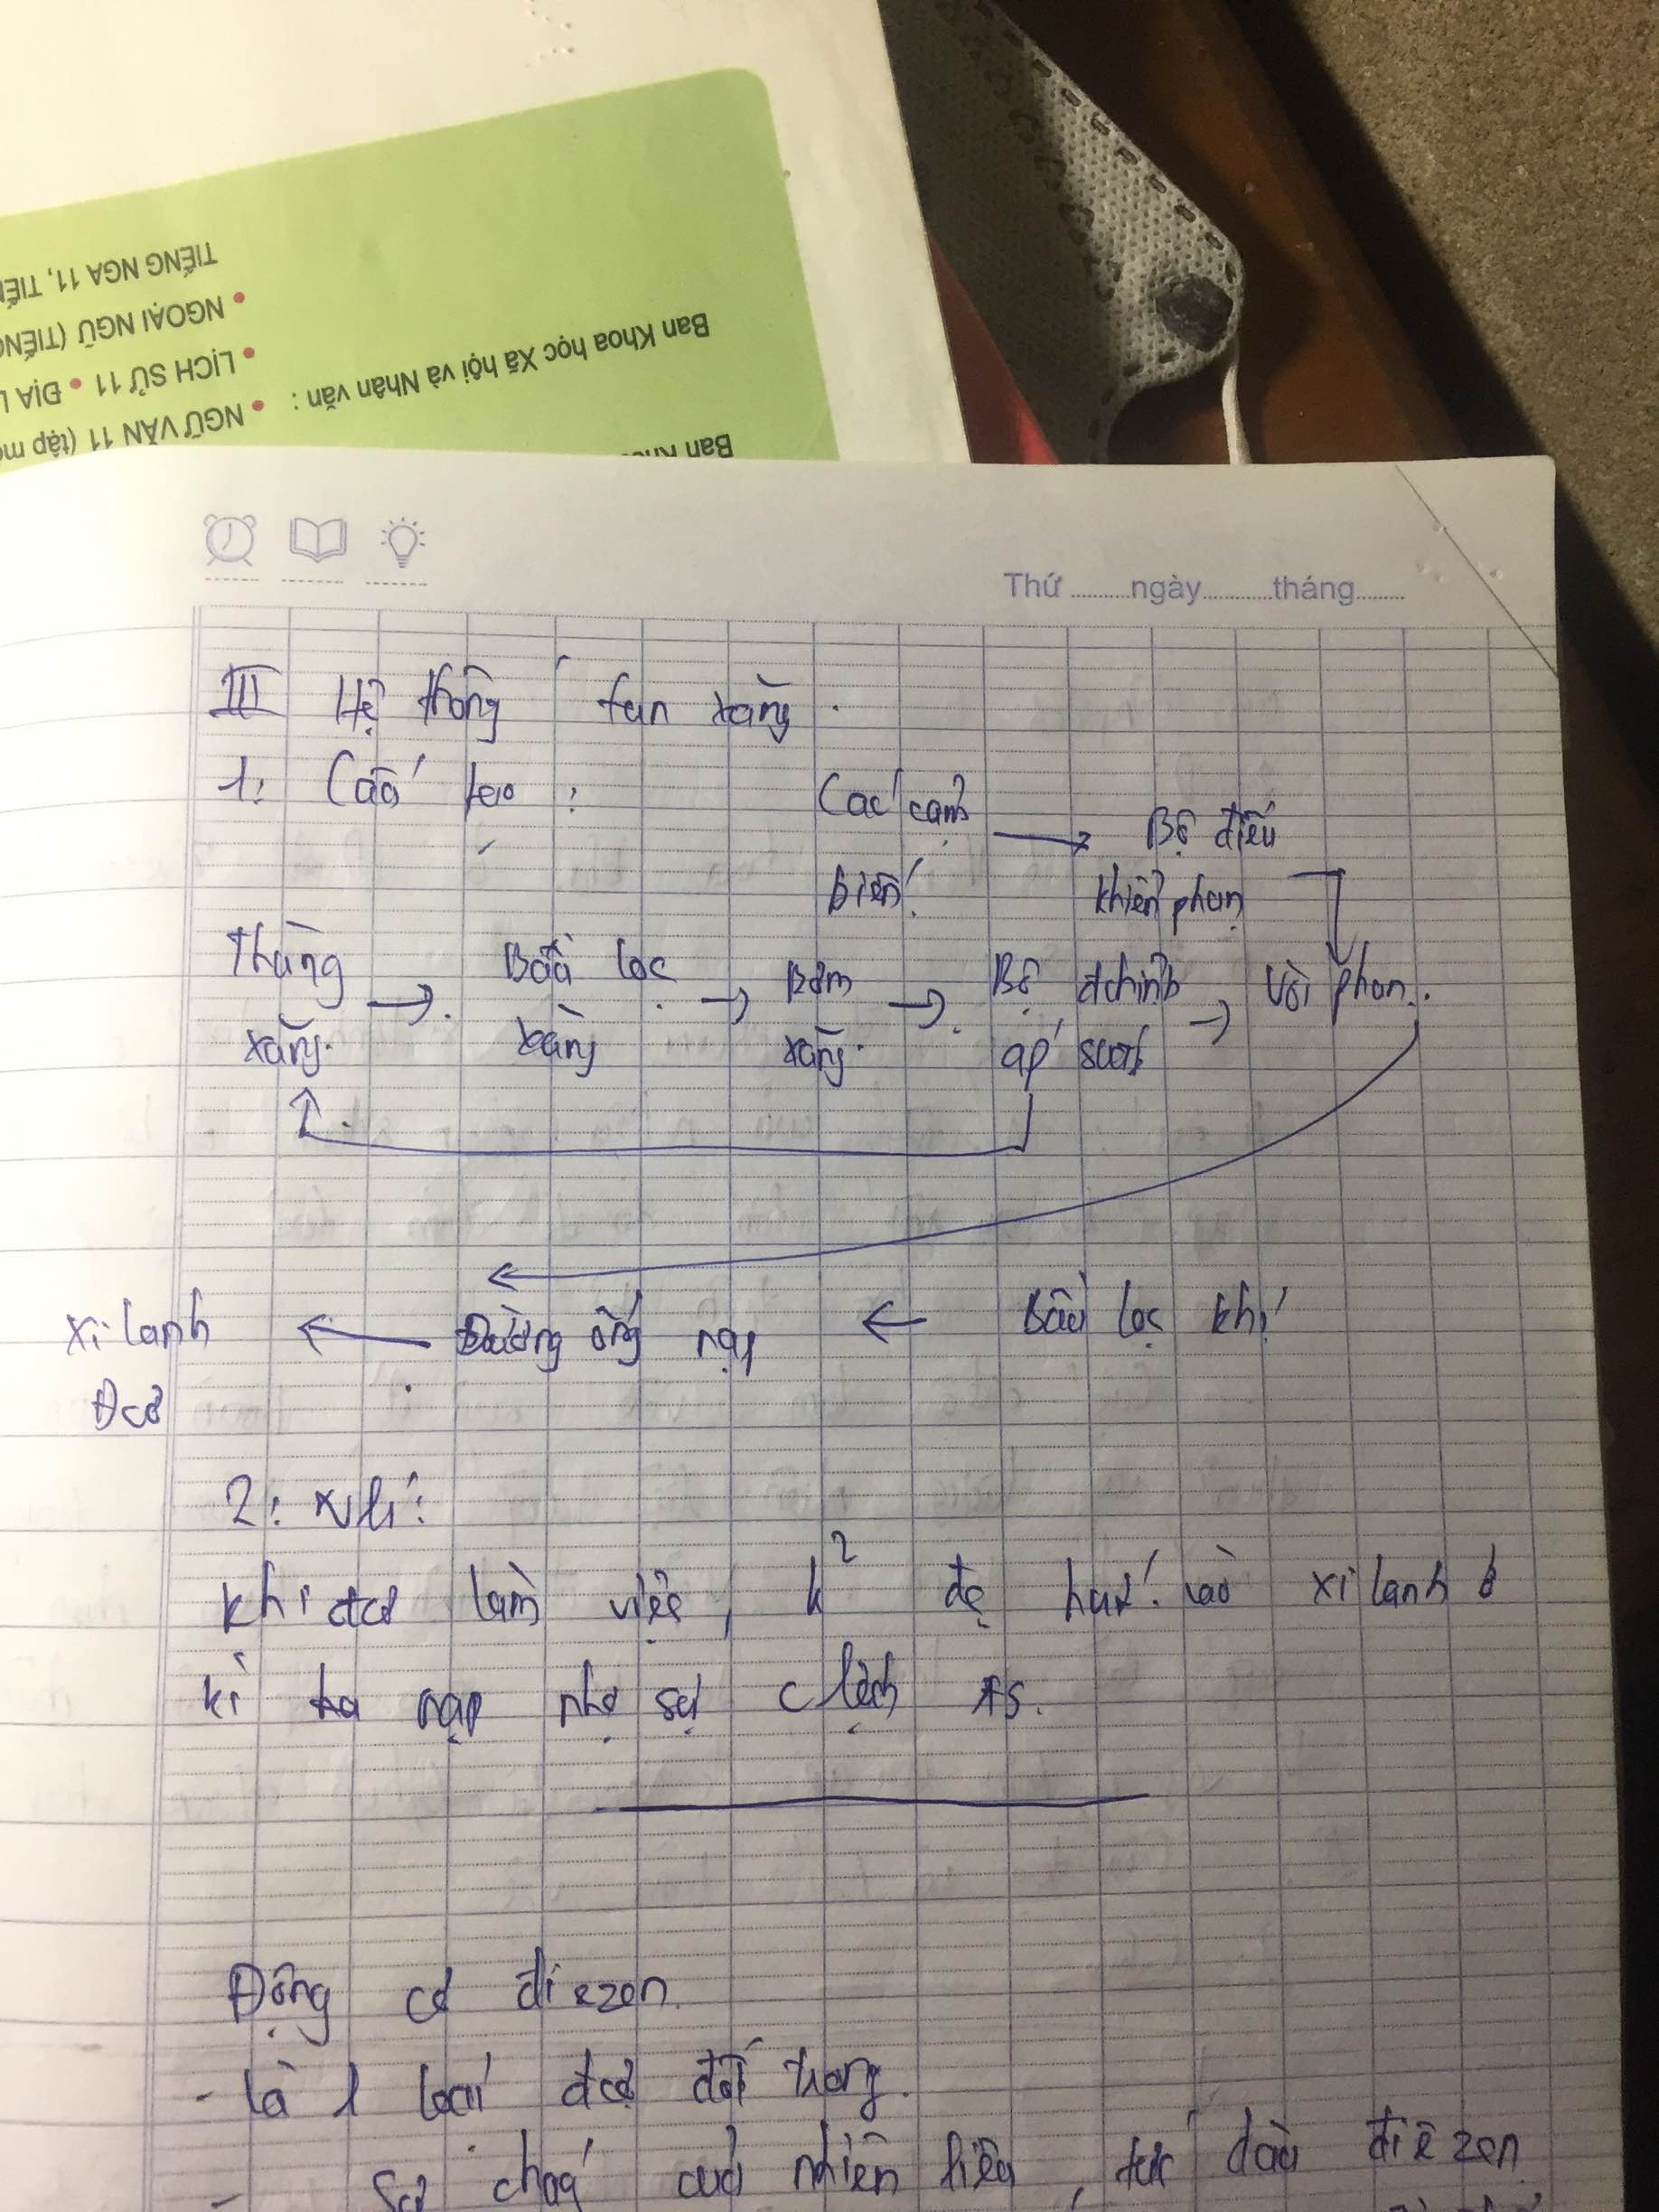 TIẾNG NGA 11, TIẾN
• NGOẠI NGỮ (TIẾNG
• LỊCH SỬ 11 • ĐỊA L
Ban Khoa học Xã hội và Nhân văn : • NGỮ VĂN 11 (tập mộ
Ban Kho
Thứ ........ngày..........tháng.......
III Hệ thống fun xăng.
1: Cấu tạo :
Các cảm biến → Bộ điều khiển phun
Thùng xăng → Bầu lọc xăng → Bơm xăng → Bộ đchỉnh áp suất → Vòi phun
xi lanh Đcơ ← Đường ống nạp ← Bầu lọc khí
2: NLí:
Khi đcơ làm việc, k² đc hút vào xi lanh ở
kì nạp nhờ sự clệch AS.
Động cơ điezen
- là 1 loại đcơ đốt trong.
- Sự cháy của nhiên liệu, tức dầu điêzen